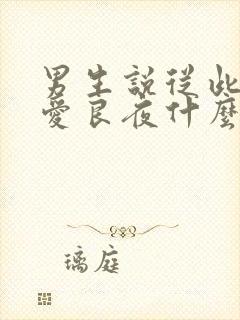 男生說從此
愛良夜什麼
璃庭